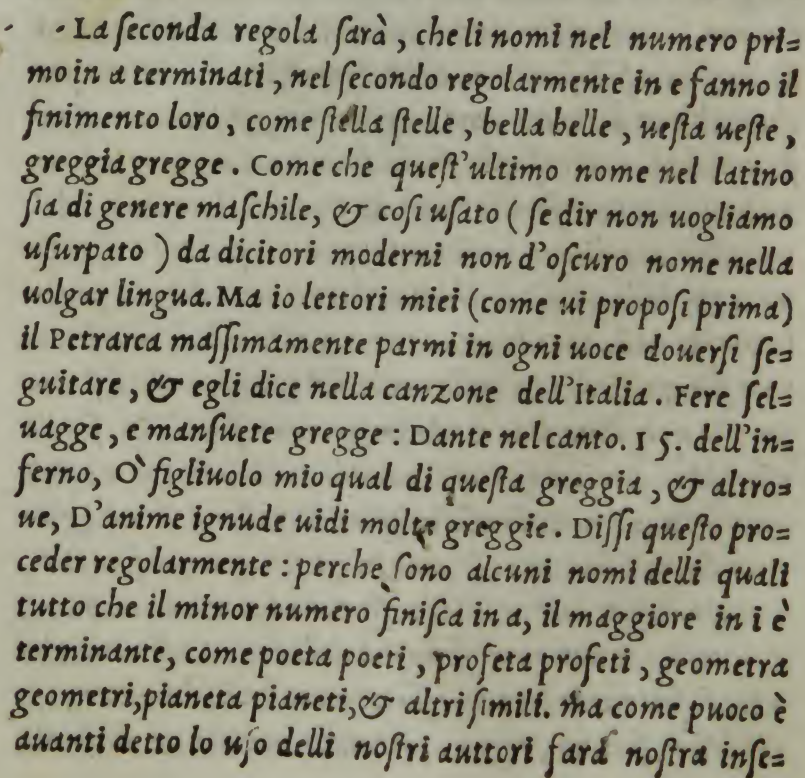 La ſeconda regola ſarà, che li nomi nel numero pri=
mo in a terminati, nel ſecondo regolarmente in e fanno il
finimento loro, come ſtella ſtelle, bella belle, ueſta ueſte,
greggia gregge. Come che queſt'ultimo nome nel latino
ſia di genere maſchile, & coſi uſato (ſe dir non uogliamo
uſurpato) da dicitori moderni non d'oſcuro nome nella
uolgar lingua. Ma io lettori miei (come ui propoſi prima)
il Petrarca maſſimamente parmi in ogni uoce douerſi ſe=
guitare, & egli dice nella canzone dell'Italia. Fere ſel=
uagge, e manſuete gregge: Dante nel canto. 15. dell'in=
ferno, O` figliuolo mio qual di queſta greggia, & altro=
ue, D'anime ignude uidi molte greggie. Diſſi queſto pro=
ceder regolarmente: perche ſono alcuni nomi delli quali
tutto che il minor numero finiſca in a, il maggiore in i è
terminante, come poeta poeti, profeta profeti, geometra
geometri, pianeta pianeti, & altri ſimili. ma come puoco è
auanti detto lo uſo delli noſtri auttori farà noſtra inſe=